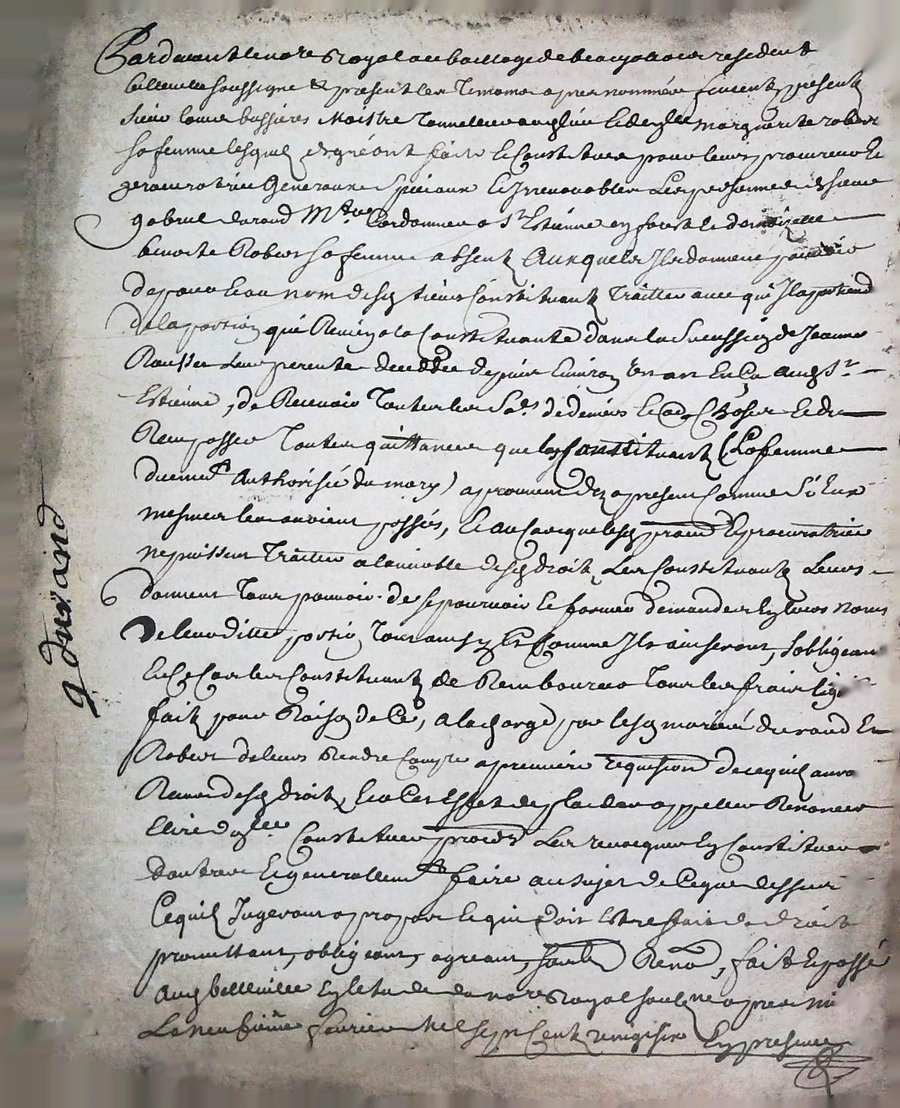 Pardevant le no.re Royal au bailliage de beaujolois resident
belleville soussigné & presents les temoins apres nommés furent presents
sieur louis bussieres Maistre Tonnelier et marguerite robert
sa femme lesquels de gré ont fait et constitué pour leurs procureur et
procuratrice Generaux speciaux et Irrevocables les personnes de sieur
gabriel durand M.tre Cordonnier a S.t Estienne en forest et demoiselle
benoite Robert sa femme absents Auxquels Ils donnent pouvoir
de pour et au nom desd. sieurs Constituants Traitter avec qui Il apartiend
de la portion qui Revient a la Constituante dans la Succession de Jeanne
leur parente decedée depuis environ un an en ça aud. S.t
Estienne, de Recevoir Toutes les de deniers et choses et du
Reçu passer Toutes quittances que les Constituants (La femme
authorisée du mary) aprouvent dez a present Comme Si Eux
mesmes les avoient passés, et au cas que lesd. procur. et procuratrice
ne puissent Traitter a l'amiable desd. droits, Les Constituants Leurs
donnent Tout pouvoir de se pourvoir et former demandes en leurs noms
de leur ditte portion Tout ainsy et Comme Ils aviseront, s'obligeant
les Constituants de Rembourcer Tous les frais
faits pour Raison de Ce, a la charge par lesd. mariés durand et
Robert de leurs Rendre Compte a premiere requisition de ce quils auront
Retiré desd. droits, et a Ces Effets de plaider appeller Renoncer
Elire dom.lle Constituer procu.rs Les revocquer en Constituer
d'autres et generallem.t faire au sujet de Ce que dessus
Ce quils Jugeront a propos et qui doit estre fait de droit
promettant, obligeant, agreant, Renon., fait et passé
Aud. belleville en l'etude dud. no.re Royal soussigné apres midi
Le neufvième fevrier Mil Sept Cent vingt six En presence
g durand